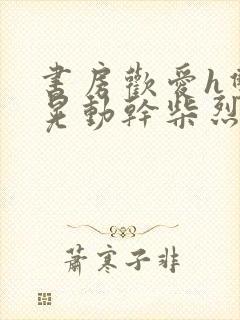 書房歡愛h
晃動幹柴烈
蕭寒子非